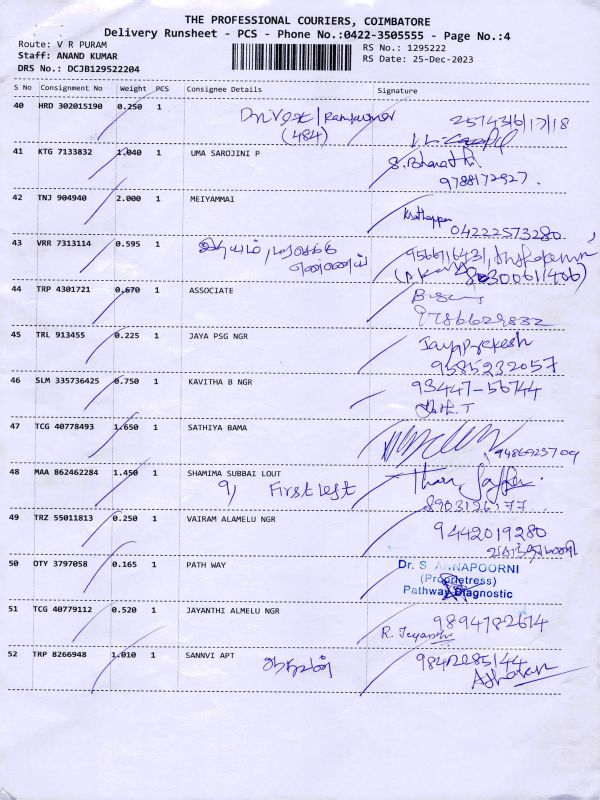 THE PROFESSIONAL COURIERS, COIMBATORE
Delivery Runsheet - PCS - Phone No.:0422-3505555 - Page No.:4
Route: V R PURAM
RS No.: 1295222
Staff: ANAND KUMAR
RS Date: 25-Dec-2023
DRS No.: DCJB129522204
S No Consignment No Weight PCS Consignee Details Signature
40 HRD 302015190 0.250 1
(484)
41 KTG 7133832 1.040 1 UMA SAROJINI P S. Bharathi
9788172927.
42 TNJ 904940 2.000 1 MEIYAMMAI
04222573280
43 VRR 7313114 0.595 1
44 TRP 4301721 0.670 1 ASSOCIATE
9786629832
45 TRL 913455 0.225 1 JAYA PSG NGR Jayaprekesh
9585232057
46 SLM 335736425 0.750 1 KAVITHA B NGR 93447-56744
47 TCG 40778493 1.650 1 SATHIYA BAMA
9486923709
48 MAA 862462284 1.450 1 SHAMIMA SUBBAI LOUT
9) First lest
49 TRZ 55011813 0.250 1 VAIRAM ALAMELU NGR 9442019280
50 OTY 3797058 0.165 1 PATH WAY Dr. S. ANNAPOORNI
(Proprietress)
Pathway Diagnostic
51 TCG 40779112 0.520 1 JAYANTHI ALMELU NGR 9894782614
R. Jayanthi
52 TRP 8266948 1.010 1 SANNVI APT 9842285144